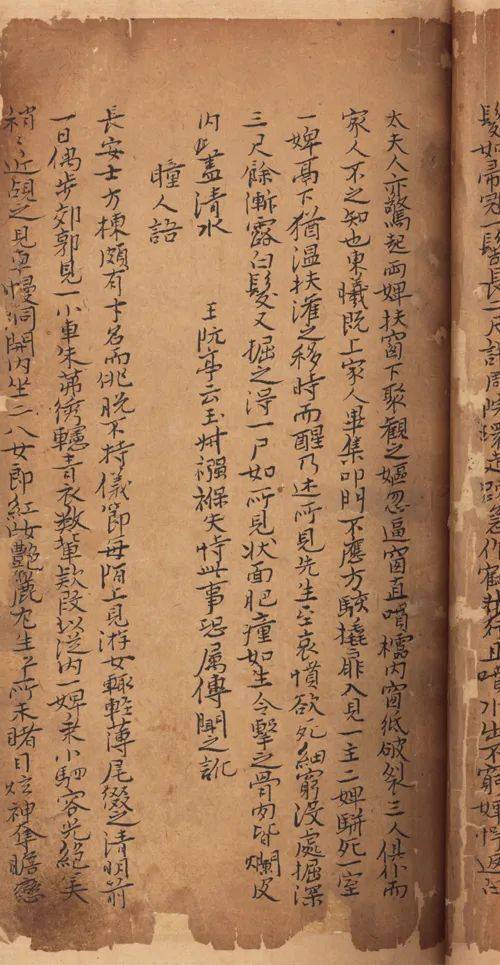 髮如帚冠一髻長二尺許周院環走疎急作鶴步行且噴水出不窮婢愕返白
太夫人亦驚起兩婢扶窗下聚觀之嫗忽逼窗直噴櫺內窗紙破裂三人俱仆而
家人不之知也東曦既上家人畢集叩門不應方駭撬扉入見一主二婢駢死一室
一婢鬲下猶溫扶灌之移時而醒乃述所見先生至哀憤欲死細窮沒處掘深
三尺餘漸露白髮又掘之得一尸如所見狀面肥瘇如生令擊之骨肉皆爛皮
內盡清水 王阮亭云玉叔襁褓失恃此事恐属傳聞之訛
瞳人語
長安士方棟頗有才名而佻脫不持儀節每陌上見游女輒輕薄尾綴之清明前
一日偶步郊郭見一小車朱茀綉幰青衣數輩欵段以從內一婢乘小駟容光絕美
稍〻近覘之見車幔洞開內坐二八女郎紅妝艷麗尤生平所未睹目炫神奪瞻戀